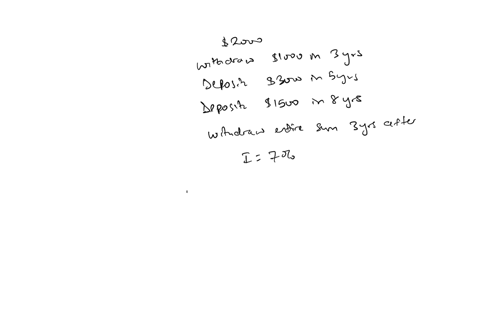 $2000
withdraw $1000 in 3 yrs
Deposit $3000 in 5 yrs
Deposit $1500 in 8 yrs
withdraw entire sum 3 yrs after
I = 7%